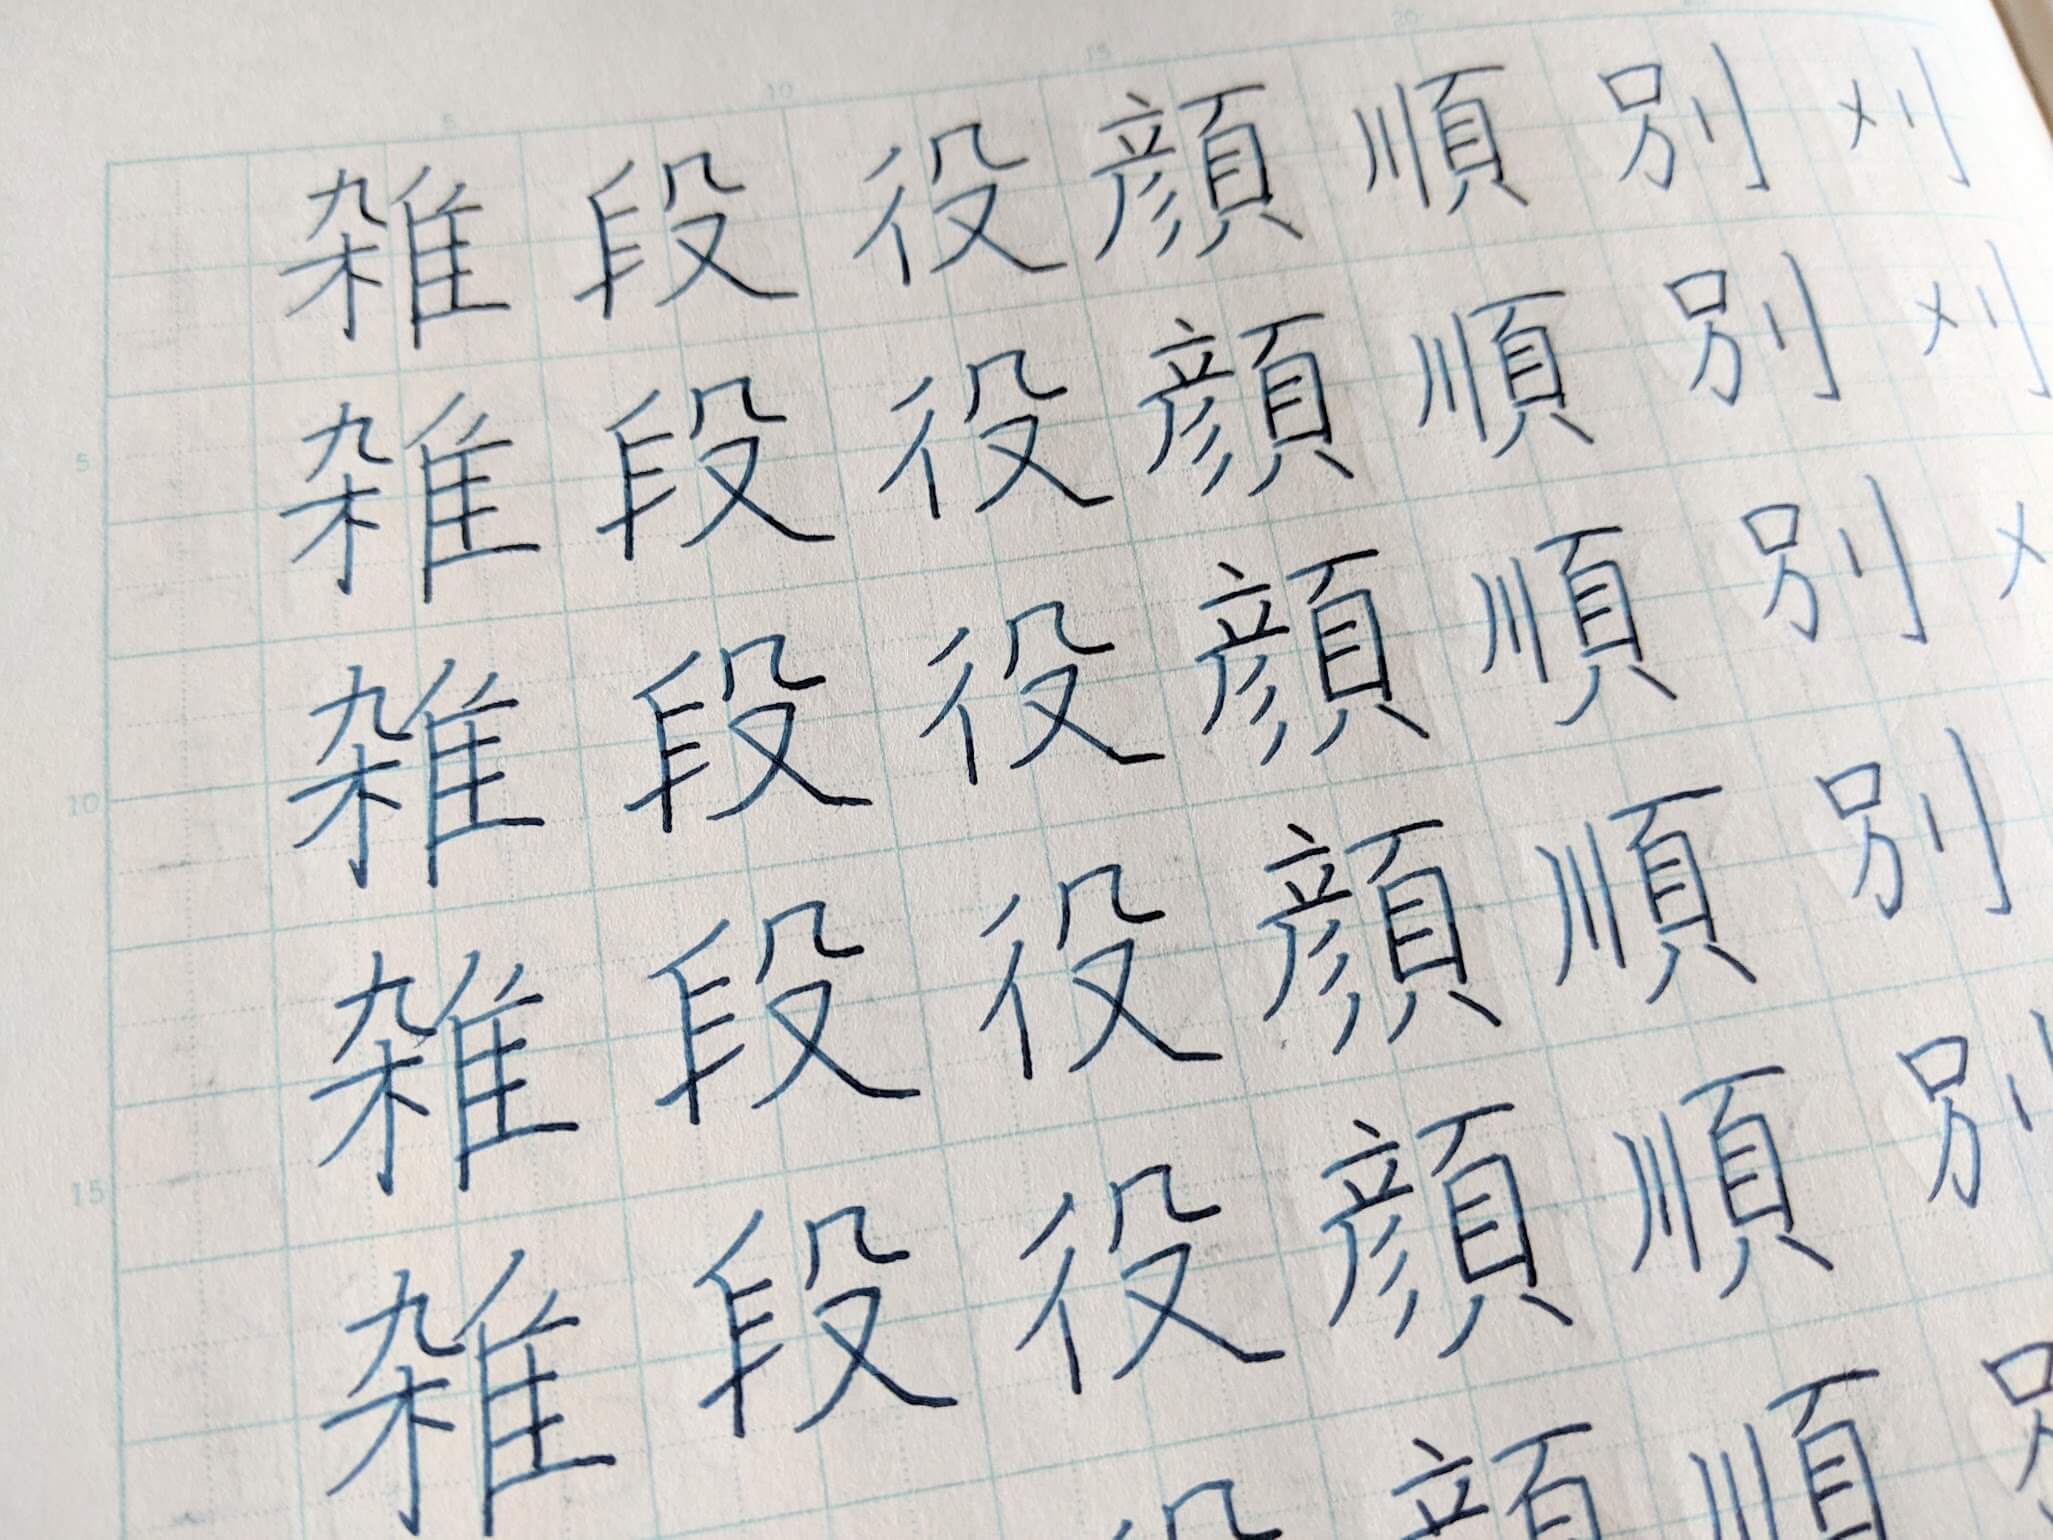 5 10 15 20
雑 段 役 顔 順 別 刈
5 雑 段 役 顔 順 別 刈
10 雑 段 役 顔 順 別
雑 段 役 顔 順 別
15 雑 段 役 顔 順 別
顔 順